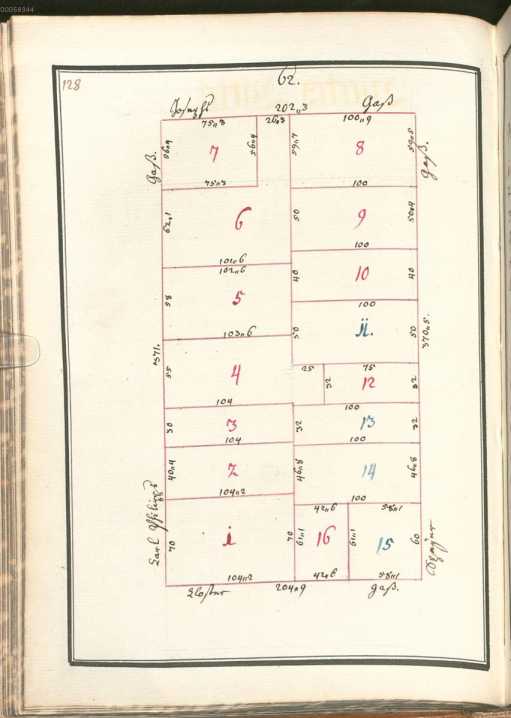 00058344
128
62.
202„3
Gaß
75„3
26„3
100„9
56„9
7
56„9
59„7
8
59„5
Gaß.
Gaß.
75„3
100
62„1
6
50
9
50„4
101„6
100
102„6
58
5
40
10
40
100
103„6
50
ii.
50
370„5.
371.
55
4
25
75
32
12
32
104
100
30
3
32
13
32
104
100
40„4
2
46„8
14
46„8
104„2
100
42„6
58„1
70
i
70
61„1
16
61„1
15
60
104„2
42„8
58„1
204„9
gaß.